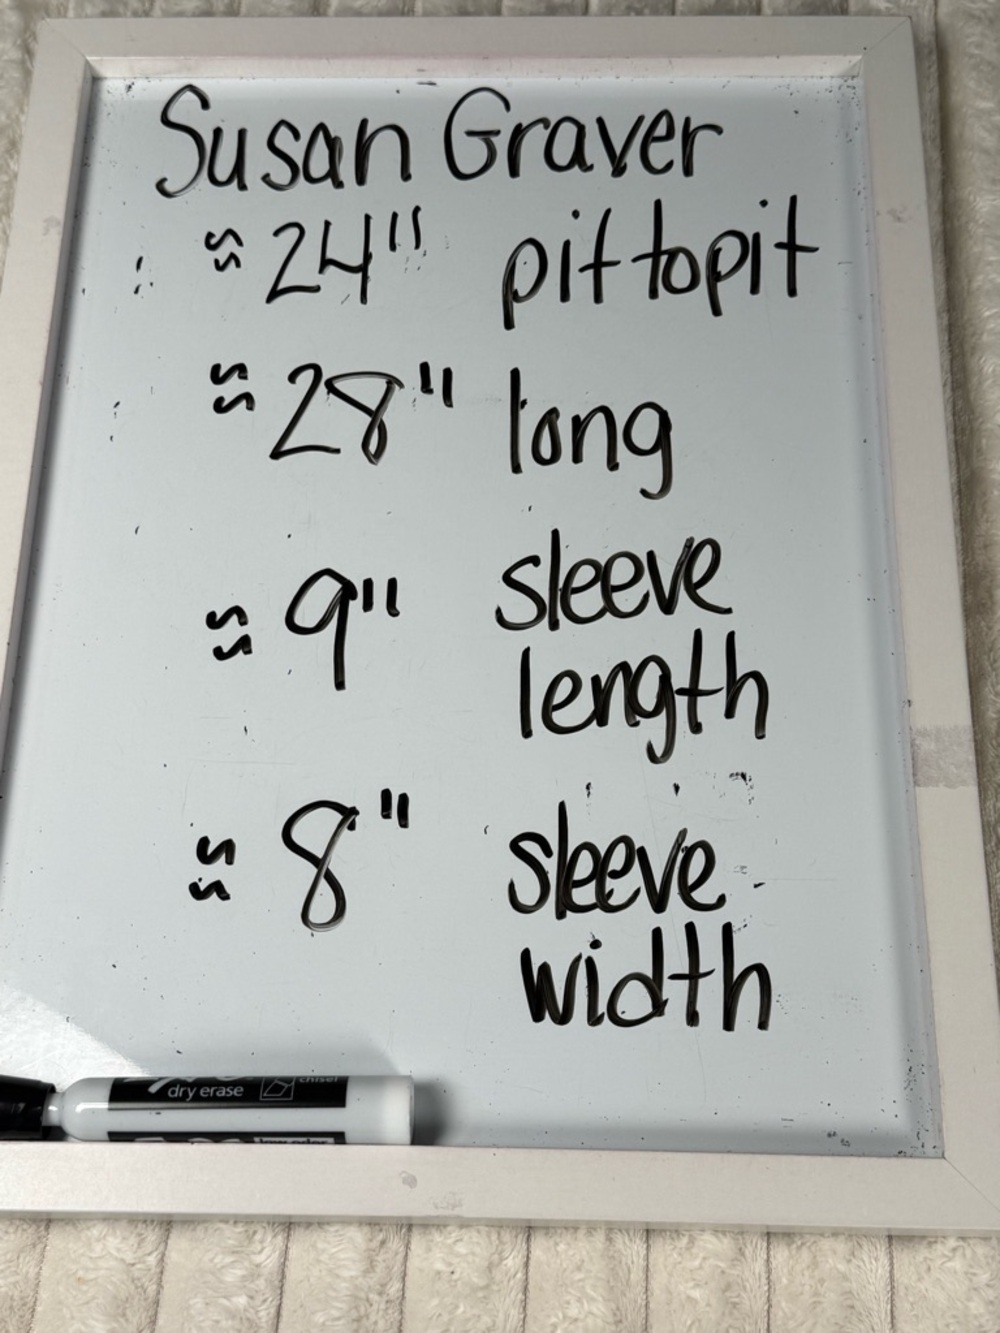 Susan Graver
≈ 24" pit to pit
≈ 28" long
≈ 9" sleeve
length
≈ 8" sleeve
width
dry erase
chisel